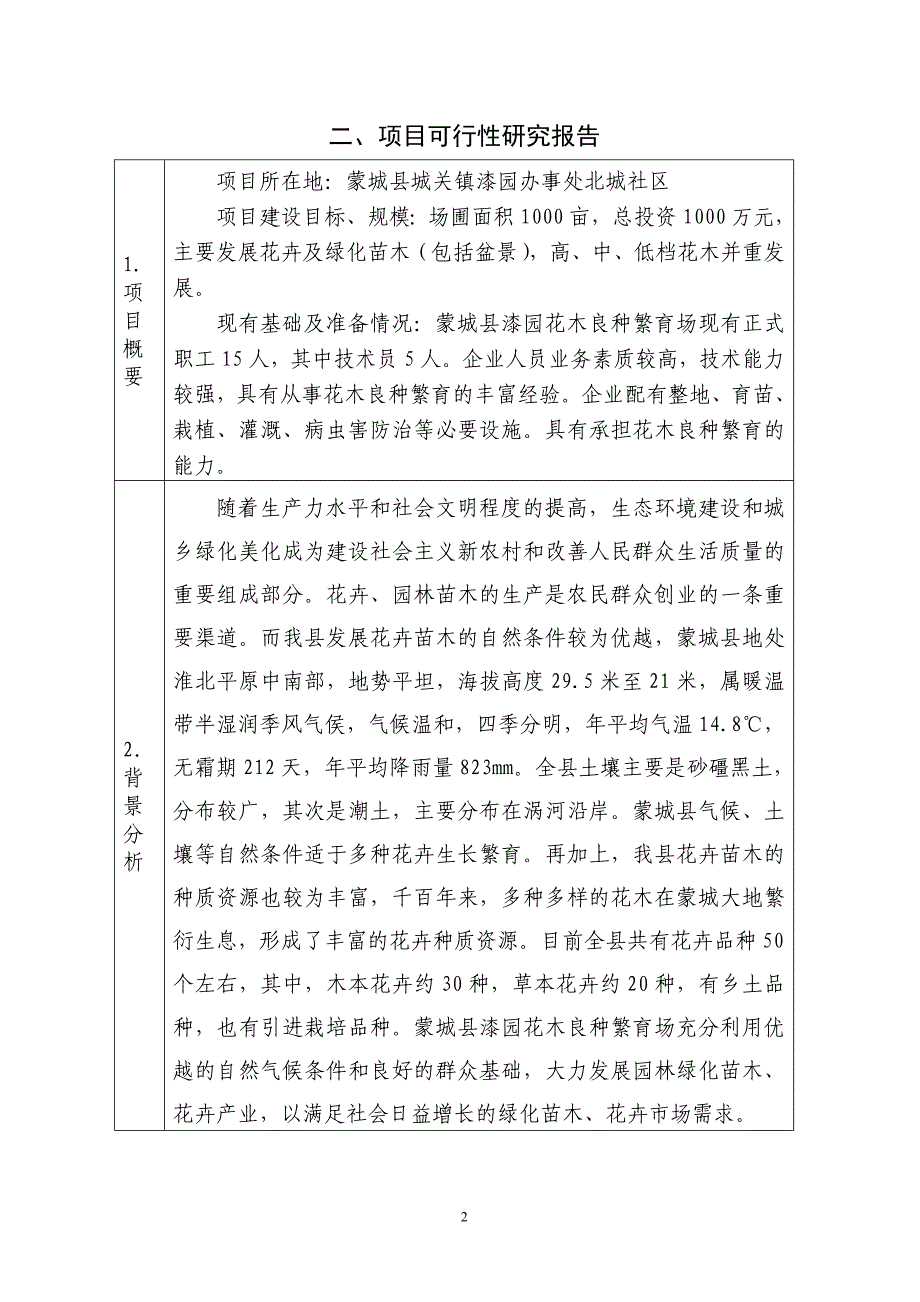 二、项目可行性研究报告
1.
项
目
概
要
项目所在地：蒙城县城关镇漆园办事处北城社区
项目建设目标、规模：场圃面积1000亩，总投资1000万元，
主要发展花卉及绿化苗木（包括盆景），高、中、低档花木并重发
展。
现有基础及准备情况：蒙城县漆园花木良种繁育场现有正式
职工15人，其中技术员5人。企业人员业务素质较高，技术能力
较强，具有从事花木良种繁育的丰富经验。企业配有整地、育苗、
栽植、灌溉、病虫害防治等必要设施。具有承担花木良种繁育的
能力。
2.
背
景
分
析
随着生产力水平和社会文明程度的提高，生态环境建设和城
乡绿化美化成为建设社会主义新农村和改善人民群众生活质量的
重要组成部分。花卉、园林苗木的生产是农民群众创业的一条重
要渠道。而我县发展花卉苗木的自然条件较为优越，蒙城县地处
淮北平原中南部，地势平坦，海拔高度29.5米至21米，属暖温
带半湿润季风气侯，气候温和，四季分明，年平均气温14.8℃，
无霜期212天，年平均降雨量823mm。全县土壤主要是砂礓黑土，
分布较广，其次是潮土，主要分布在涡河沿岸。蒙城县气候、土
壤等自然条件适于多种花卉生长繁育。再加上，我县花卉苗木的
种质资源也较为丰富，千百年来，多种多样的花木在蒙城大地繁
衍生息，形成了丰富的花卉种质资源。目前全县共有花卉品种50
个左右，其中，木本花卉约30种，草本花卉约20种，有乡土品
种，也有引进栽培品种。蒙城县漆园花木良种繁育场充分利用优
越的自然气候条件和良好的群众基础，大力发展园林绿化苗木、
花卉产业，以满足社会日益增长的绿化苗木、花卉市场需求。
2